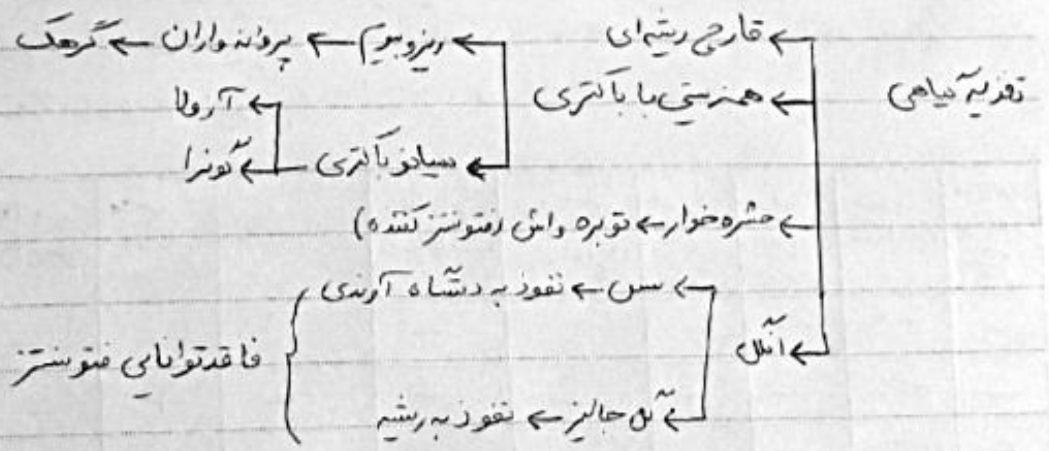 تغذیه گیاهی
قارچ ریشه‌ای
همزیستی با باکتری
ریزوبیوم ← پروانه واران ← گرهک
سیانوباکتری
آزولا
گونرا
حشره خوار ← توبره واش (فتوسنتز کننده)
انگل
سس ← نفوذ به دستگاه آوندی
گل جالیز ← نفوذ به ریشه
فاقد توانایی فتوسنتز